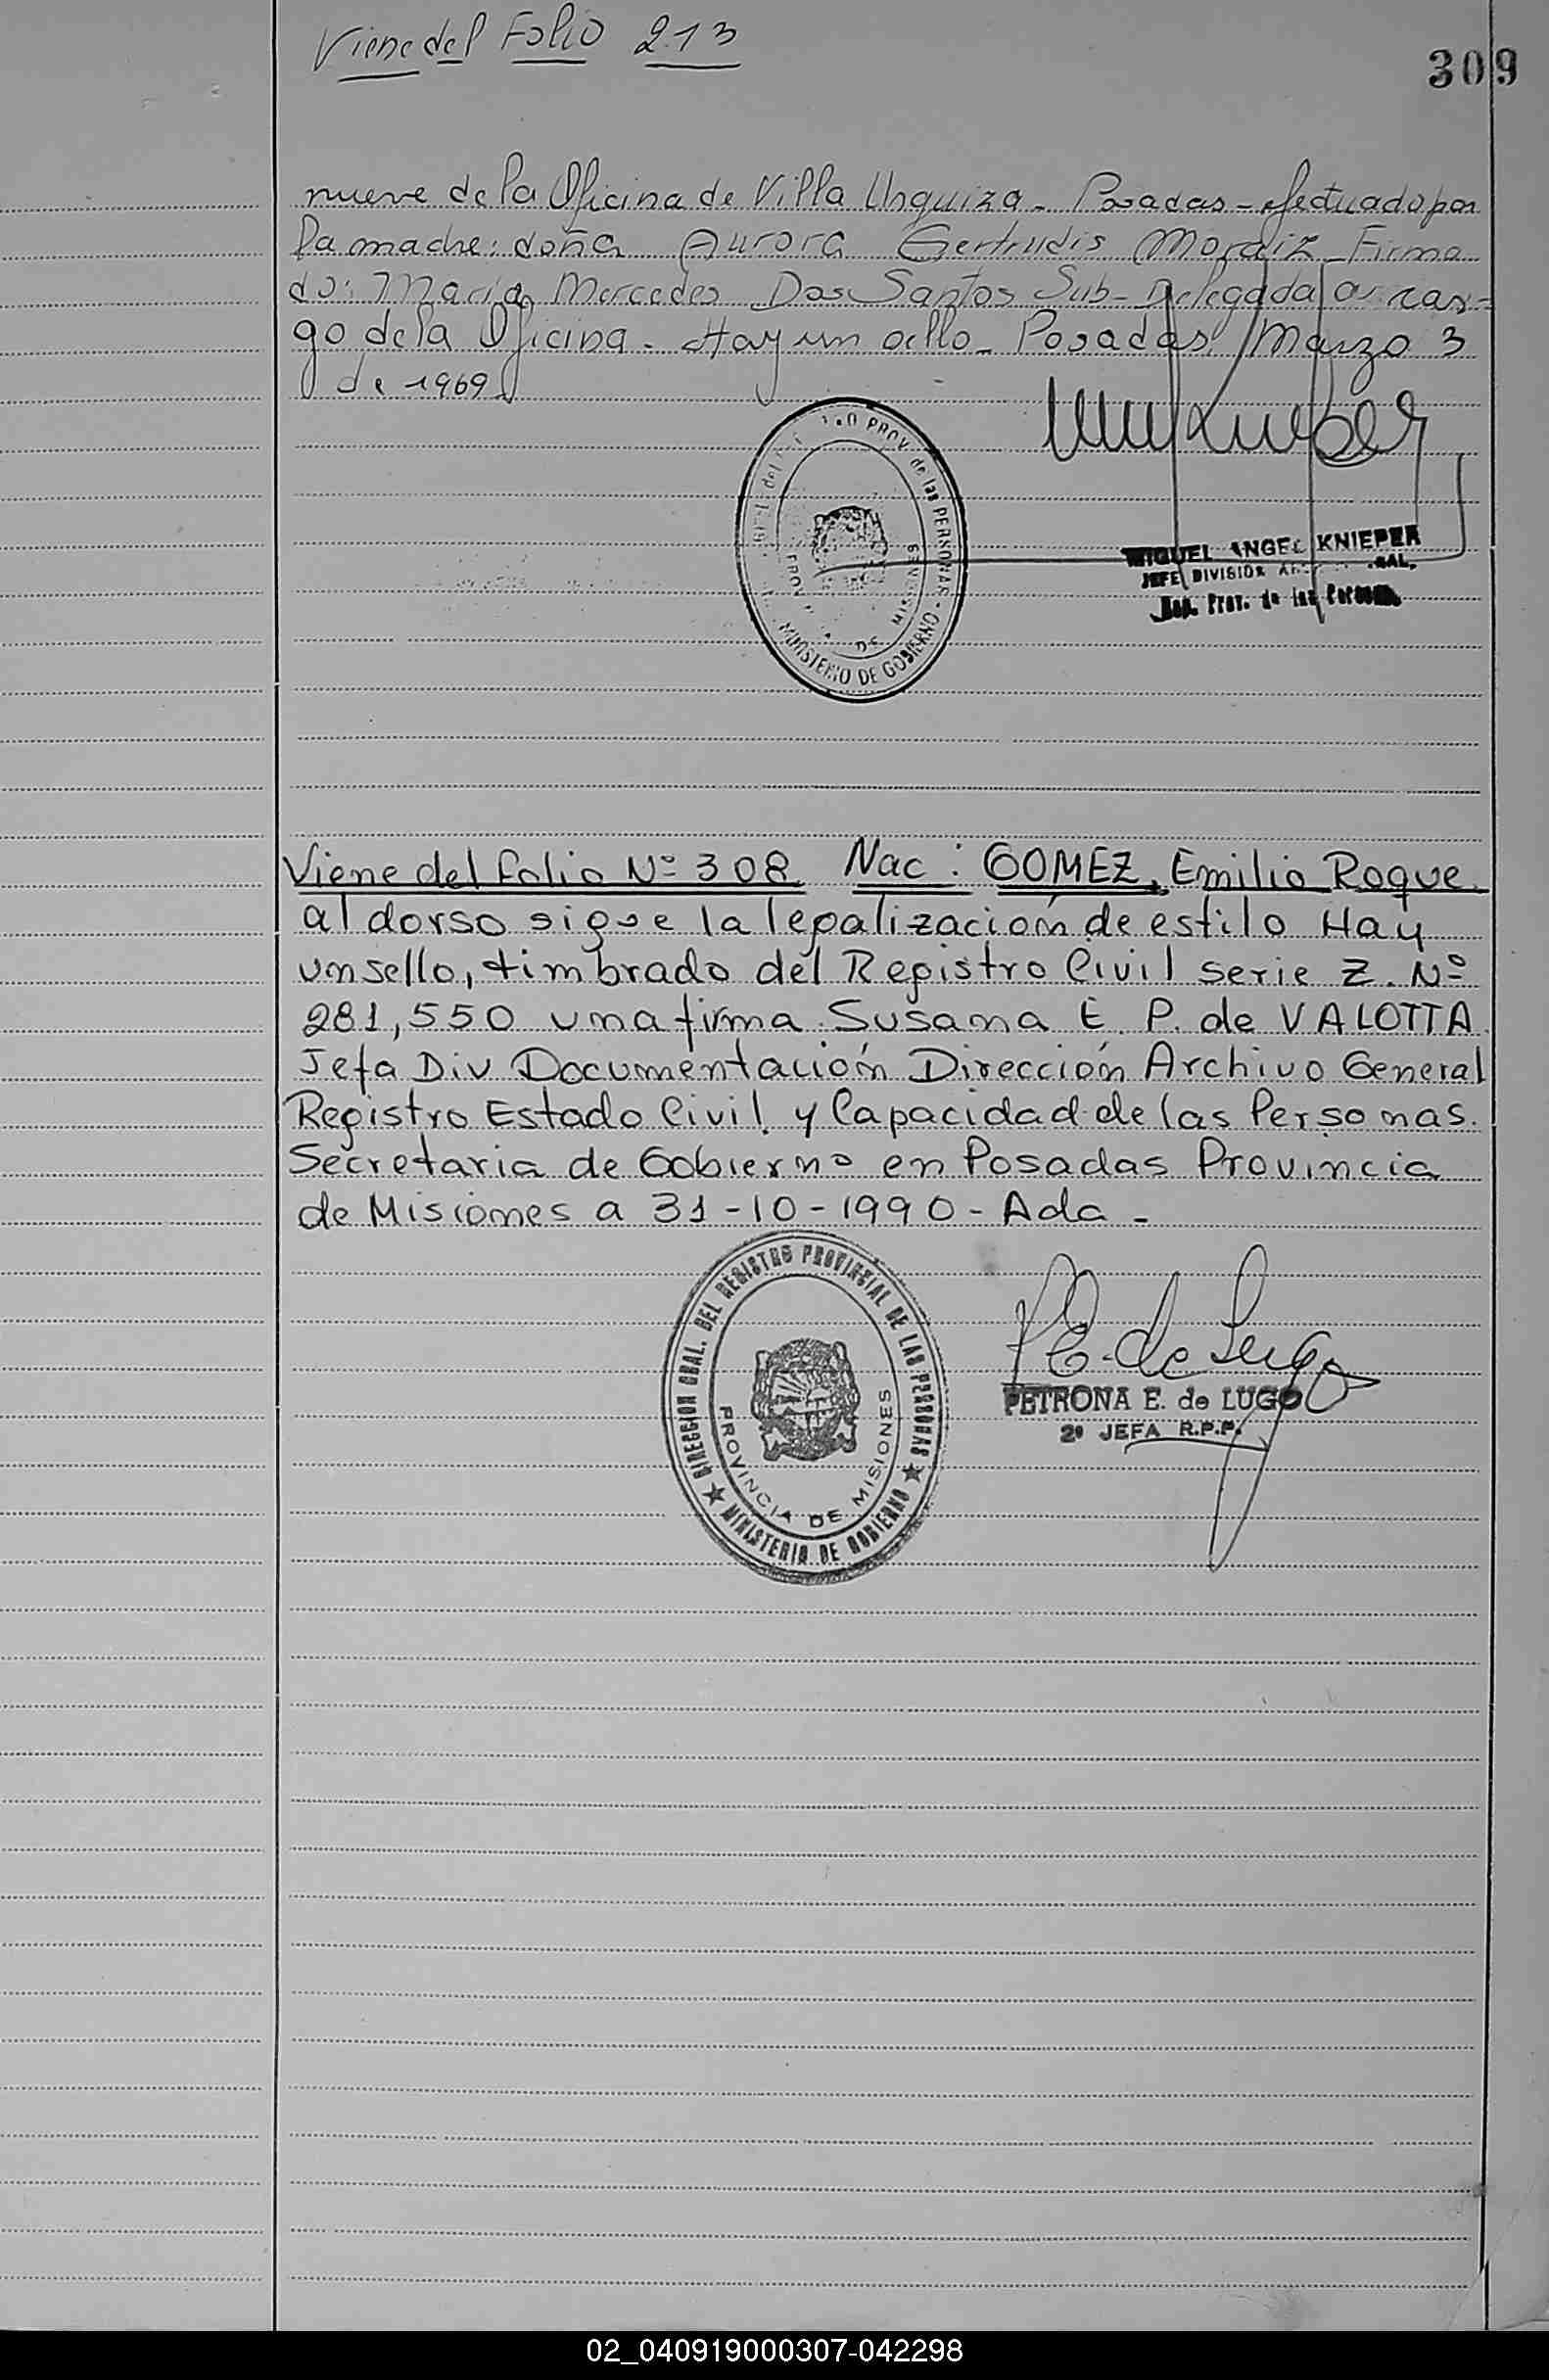 Viene del Folio 213
309
nueve de la Oficina de Villa Urquiza - Posadas - efectuado por
la madre: doña Aurora Gertrudis Moraiz - Firma
do: María Mercedes Dos Santos Sub-Delegada a car-
go de la Oficina - Hay un sello - Posadas, Marzo 3
de 1969
PROV. de las PERSONAS - MINISTERIO DE GOBIERNO
DE MISIONES
MIGUEL ANGEL KNIEPER
JEFE DIVISION
Prov. de las Personas
Viene del folio Nº 308 Nac: GOMEZ, Emilio Roque.
al dorso sigue la legalización de estilo Hay
un sello, timbrado del Registro Civil serie Z. Nº
281,550 una firma: Susana E. P. de VALOTTA
Jefa Div Documentación Dirección Archivo General
Registro Estado Civil y Capacidad de las Personas.
Secretaria de Gobierno en Posadas Provincia
de Misiones a 31-10-1990 - Ada -
DIRECCION GRAL. DEL REGISTRO PROVINCIAL DE LAS PERSONAS ★ MINISTERIO DE GOBIERNO ★
PROVINCIA DE MISIONES
P E. de Lugo
PETRONA E. de LUGO
2º JEFA R.P.P.
02_040919000307-042298